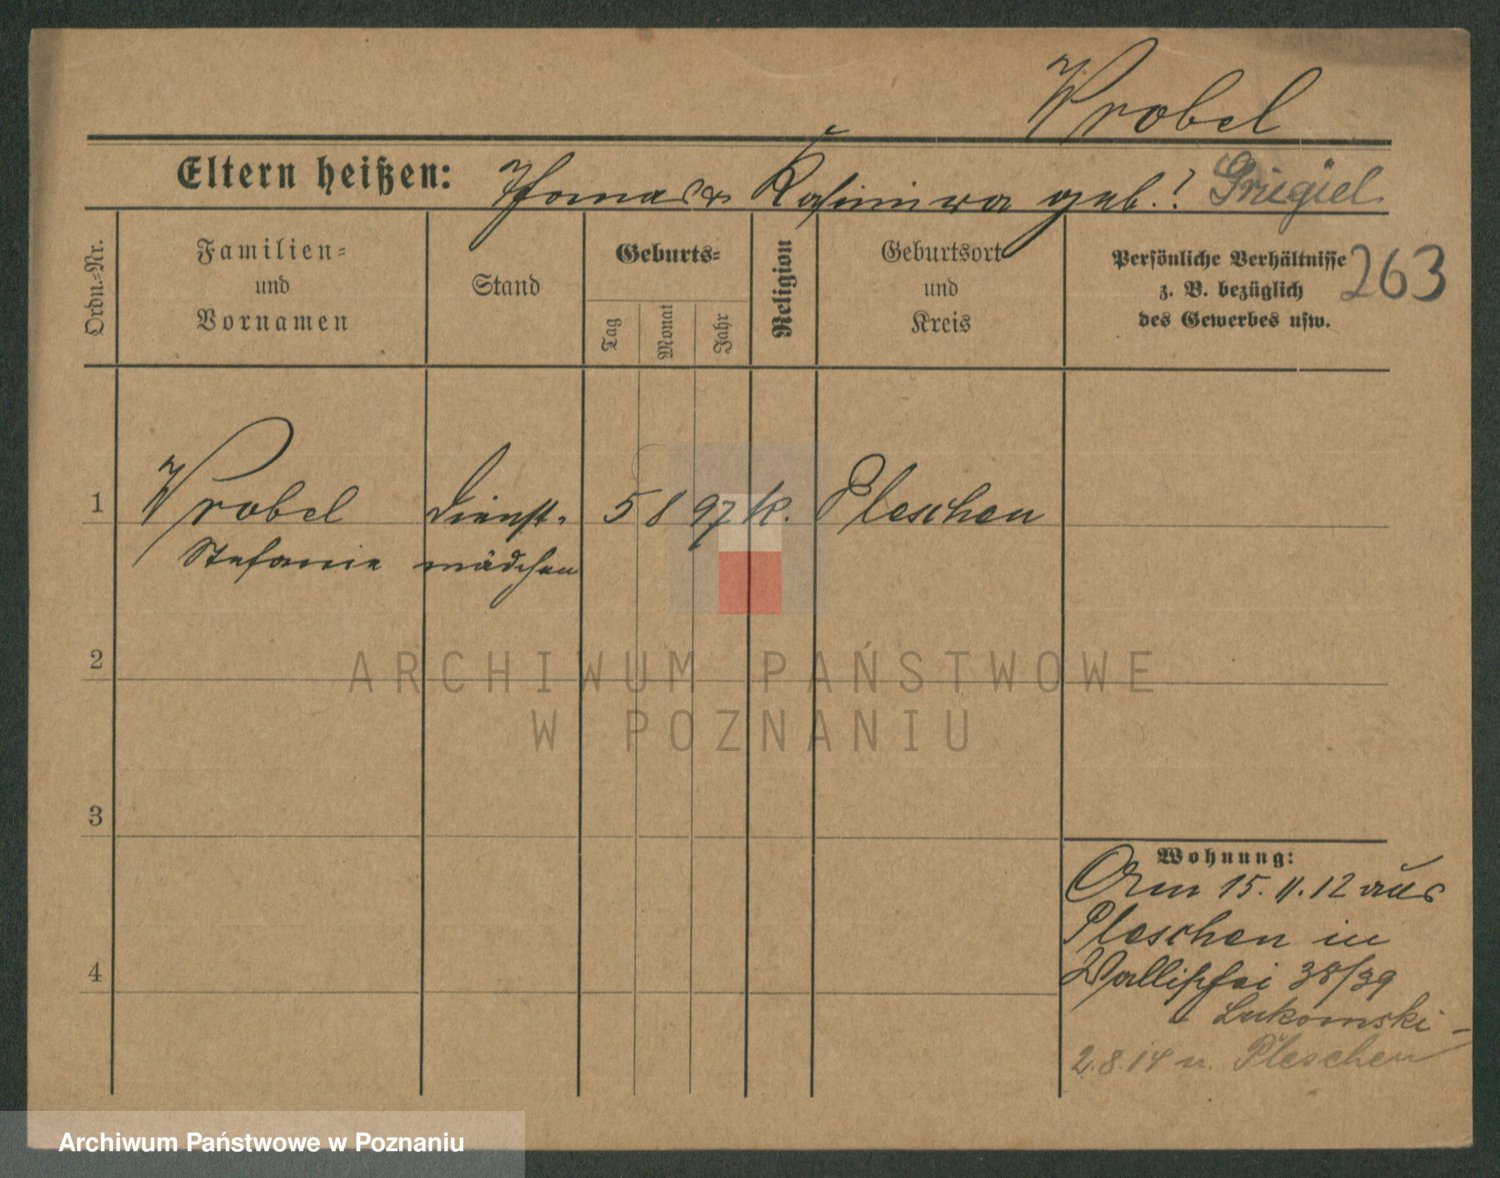 Wrobel
Eltern heißen: Thomas & Kasimira geb.? Griegiel
Ordn.-Nr.
Familien-
und
Vornamen
Stand
Geburts-
Tag
Monat
Jahr
Religion
Geburtsort
und
Kreis
Persönliche Verhältnisse
z. B. bezüglich
des Gewerbes usw.
263
1 Wrobel Dienst- 5 8 97 k. Pleschen
Stefanie mädchen
2
3
4
Wohnung:
Am 15.11.12 aus
Pleschen in
Wallischei 38/39
b Lukomski-
2.8.14 n. Pleschen
ARCHIWUM PAŃSTWOWE
W POZNANIU
Archiwum Państwowe w Poznaniu